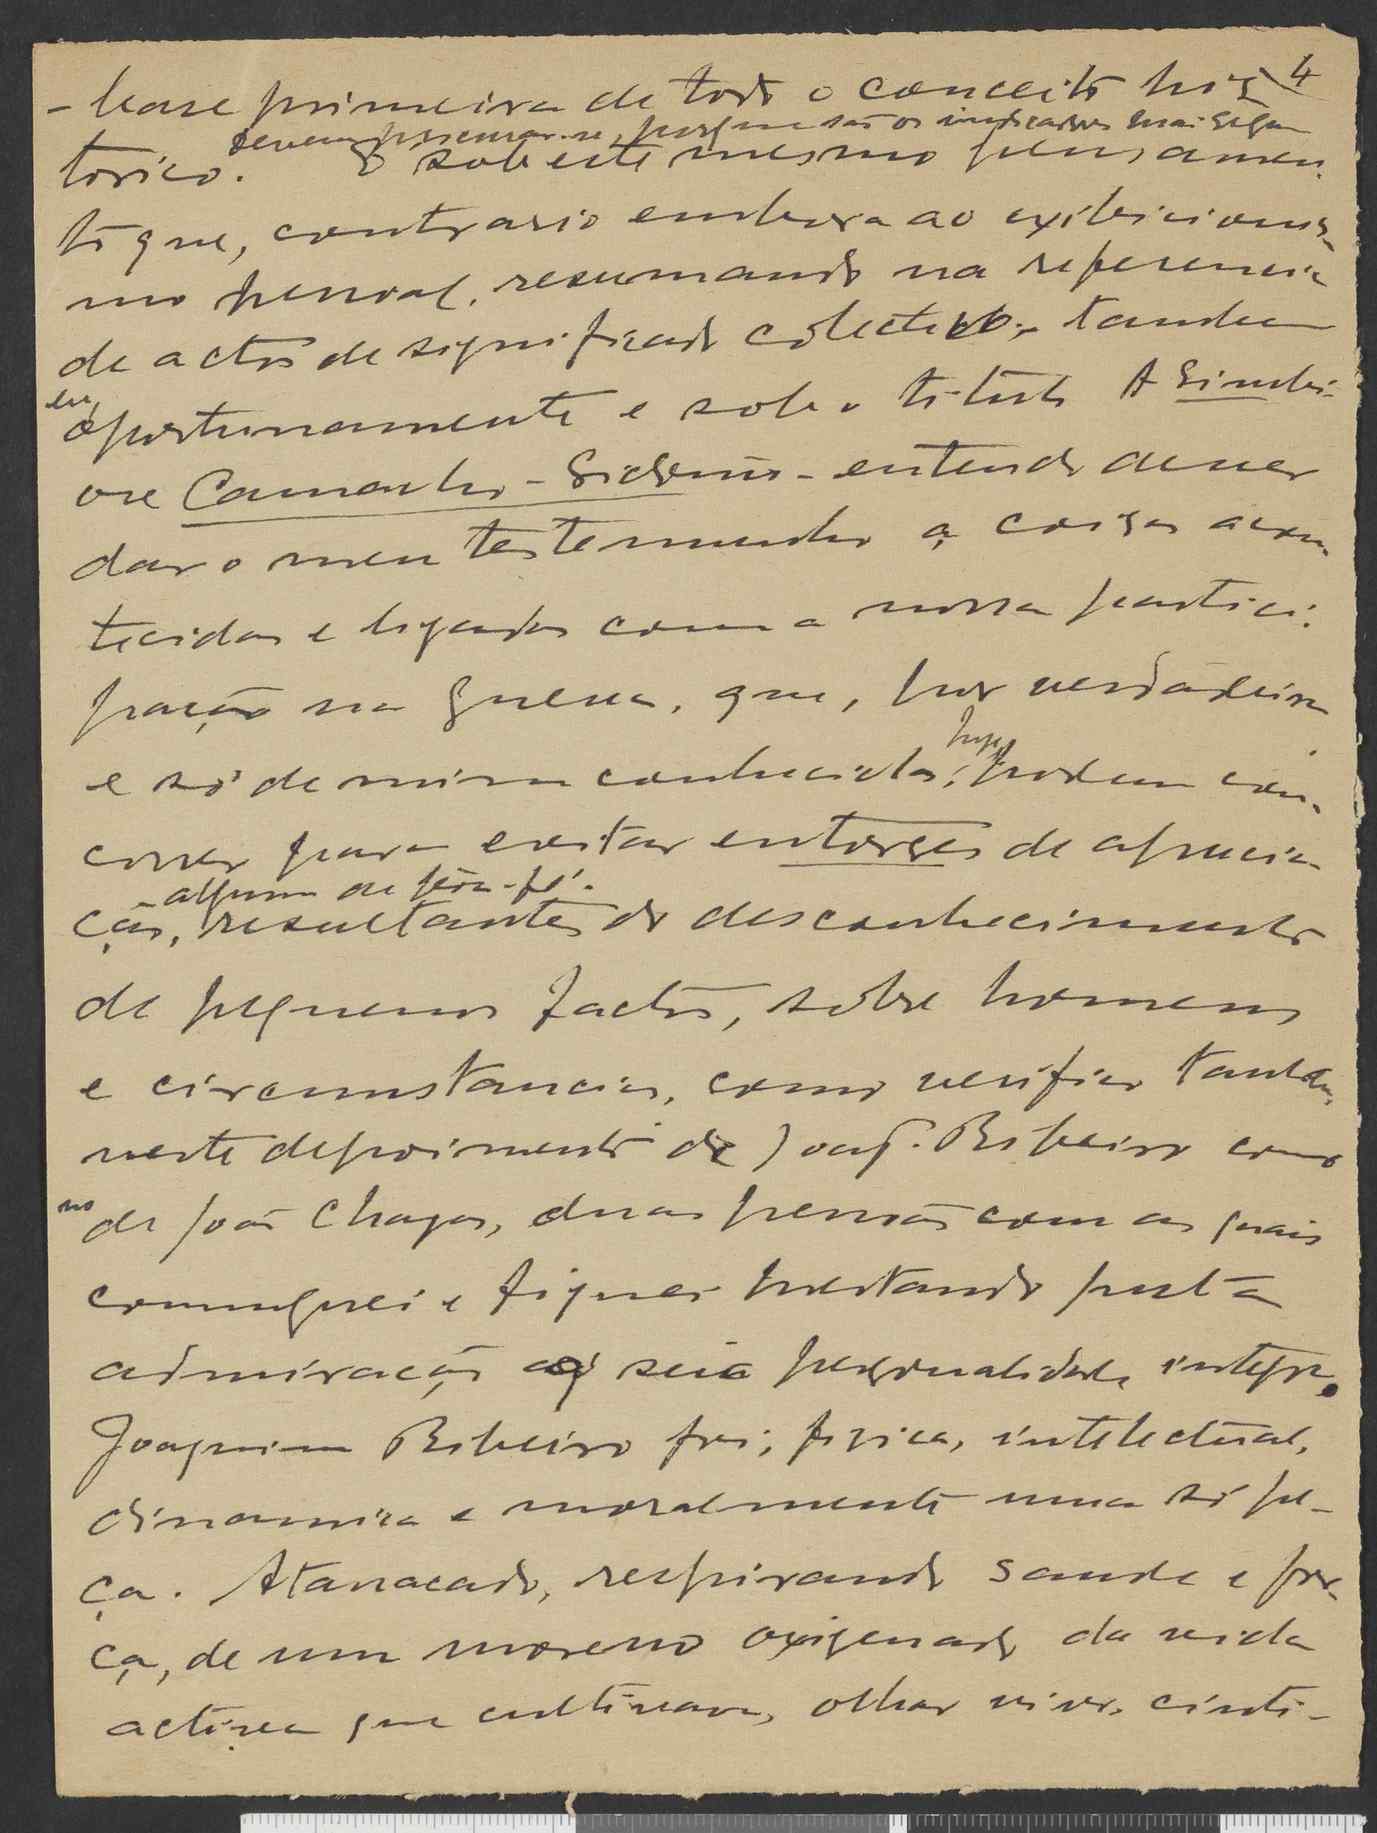 4
- base primeira de todo o conceito his-
devem procurar-se, porque são os indicados mais segu
torico. E sob este mesmo pensamen-
to que, contrario embora ao exibicionis-
mo pessoal, resumando na referencia
de actos de significado colectivo, tambem
eu,
oportunamente e sob o titulo A Simbi-
ose Camacho-Sidonio - entendo dever
dar o meu testemunho a coisas acon-
tecidas e ligadas com a nossa partici-
pação na guerra, que, por verdadeiras
e só de mim conhecidas, podem con-
correr para evitar entorses de aprecia-
alguma de bôa-fé.
ção, resultantes do desconhecimento
de pequenos factos, sobre homens
e circumstancias, como verifico tanto
neste depoimento de Joaq. Ribeiro como
no
de João Chagas, duas pessoas com as quais
comunguei e fiquei prestando justa
admiração á sua personalidade integra.
Joaquim Ribeiro foi, fisica, intelectual,
dinamica e moralmente uma só pe-
ça. Atarracado, respirando saude e for-
ça, de um moreno oxigenado da vida
activa que cultivava, olhar vivo, cinti-